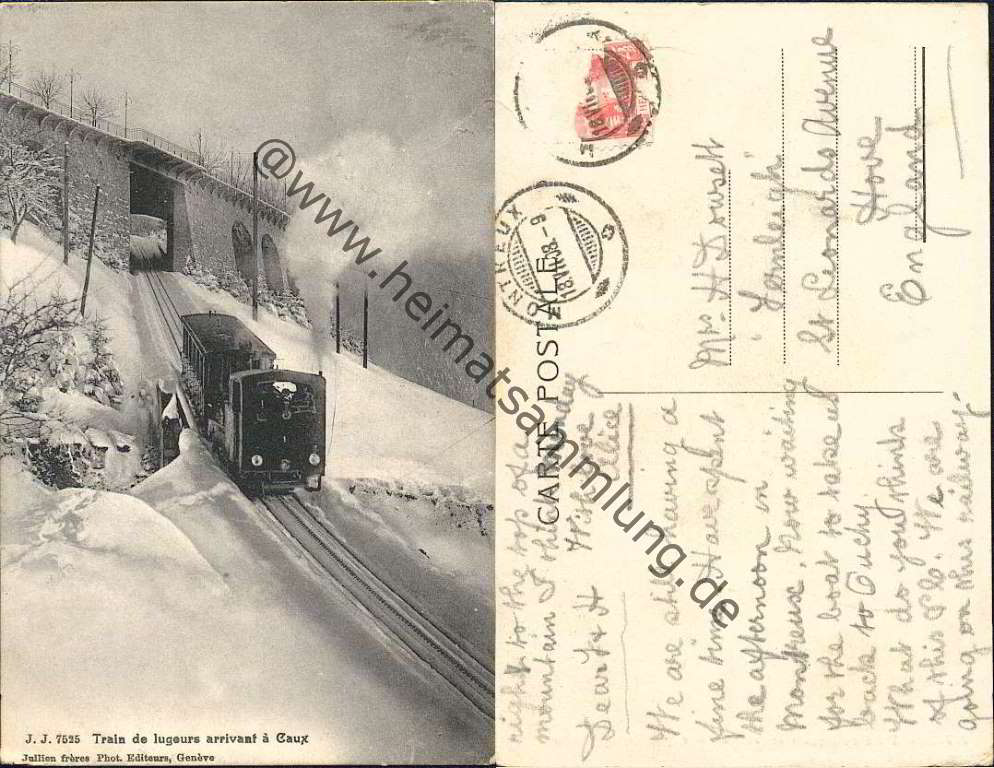 J. J. 7525 Train de lugeurs arrivant à Caux
Jullien frères Phot. Editeurs, Genève
@www.heimatsammlung.de
CARTE POSTALE
MONTREUX
18 VII 08 - 9
Mrs H Dowsett
"Fernleigh"
St Leonards Avenue
Hove
England
right to the top of a
mountain I think Monday
With love
Alice
Dear F & H
We are still having a
fine time. Have spent
the afternoon in
Montreux. Now waiting
for the boat to take us
back to Ouchy
What do you think
of this P.C. We are
going on this railway.